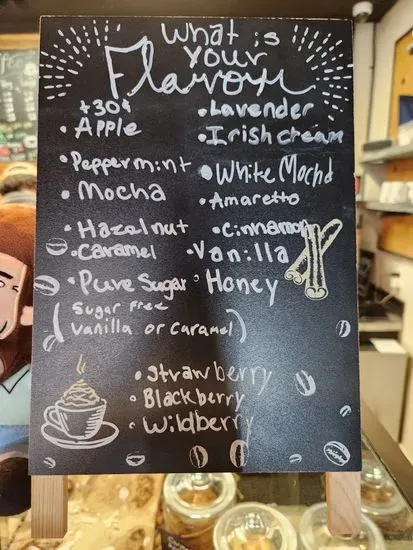 What is
Your
Flavour
+30¢
• Apple
• Peppermint
• Mocha
• Hazelnut
• Caramel
• Pure Sugar
(Sugar Free
Vanilla or Caramel)
• Lavender
• Irish cream
• White Mocha
• Amaretto
• Cinnamon
• Vanilla
• Honey
• Strawberry
• Blackberry
• Wildberry